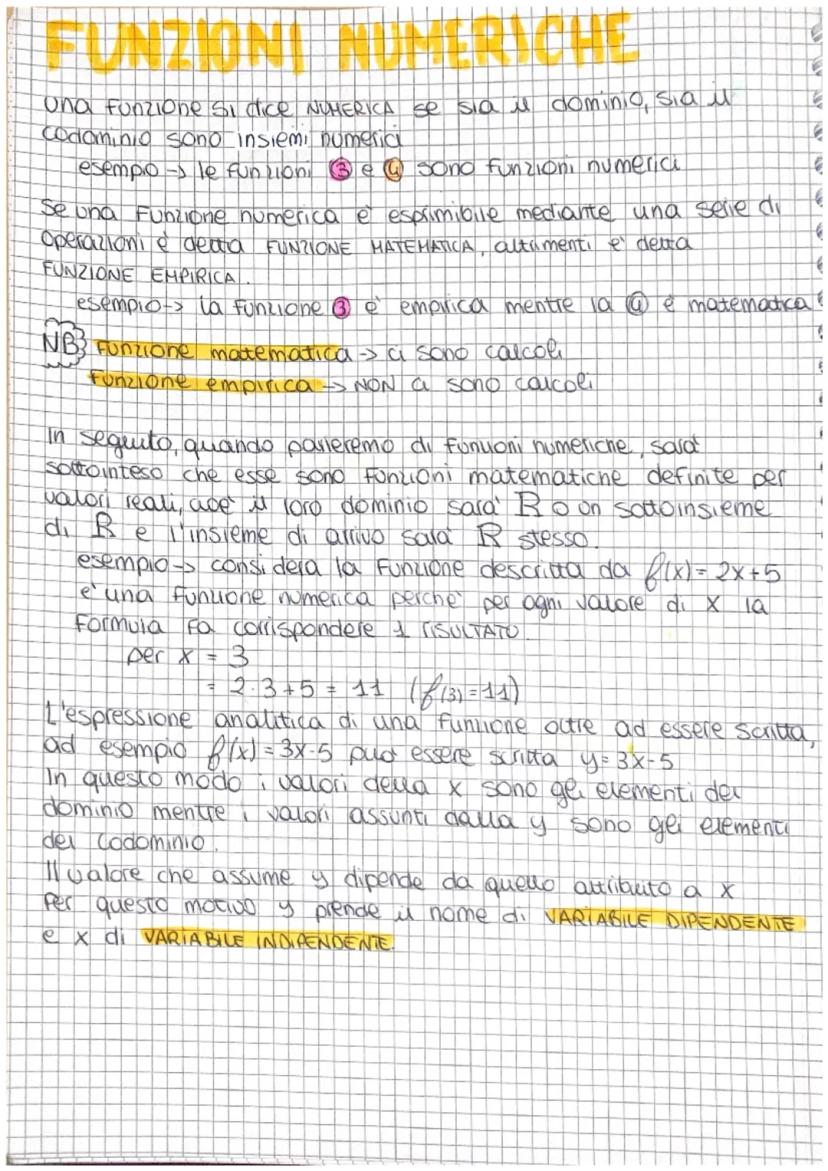 FUNZIONI NUMERICHE
Una funzione si dice NUMERICA se sia il dominio, sia il
codominio sono insiemi numerici
esempio -> le funzioni ③ e ④ sono funzioni numerici
Se una Funzione numerica e' esprimibile mediante una serie di
operazioni è detta FUNZIONE MATEMATICA, altrimenti e' detta
FUNZIONE EMPIRICA.
esempio -> la funzione ③ e' empirica mentre la ④ è matematica
NB} Funzione matematica -> ci sono calcoli
Funzione empirica -> NON ci sono calcoli
In seguito, quando parleremo di funzioni numeriche, sara'
sottointeso che esse sono funzioni matematiche definite per
valori reali, cioe' il loro dominio sara' R o un sottoinsieme
di R e l'insieme di arrivo sara' R stesso.
esempio -> considera la funzione descritta da f(x) = 2x+5
e' una funzione numerica perche' per ogni valore di x la
formula fa corrispondere 1 RISULTATO
per x = 3
= 2·3+5 = 11 (f(3)=11)
L'espressione analitica di una funzione oltre ad essere scritta,
ad esempio f(x) = 3x-5 puo' essere scritta y = 3x-5
In questo modo i valori della x sono gli elementi del
dominio mentre i valori assunti dalla y sono gli elementi
del codominio.
Il valore che assume y dipende da quello attribuito a x
Per questo motivo y prende il nome di VARIABILE DIPENDENTE
e x di VARIABILE INDIPENDENTE.